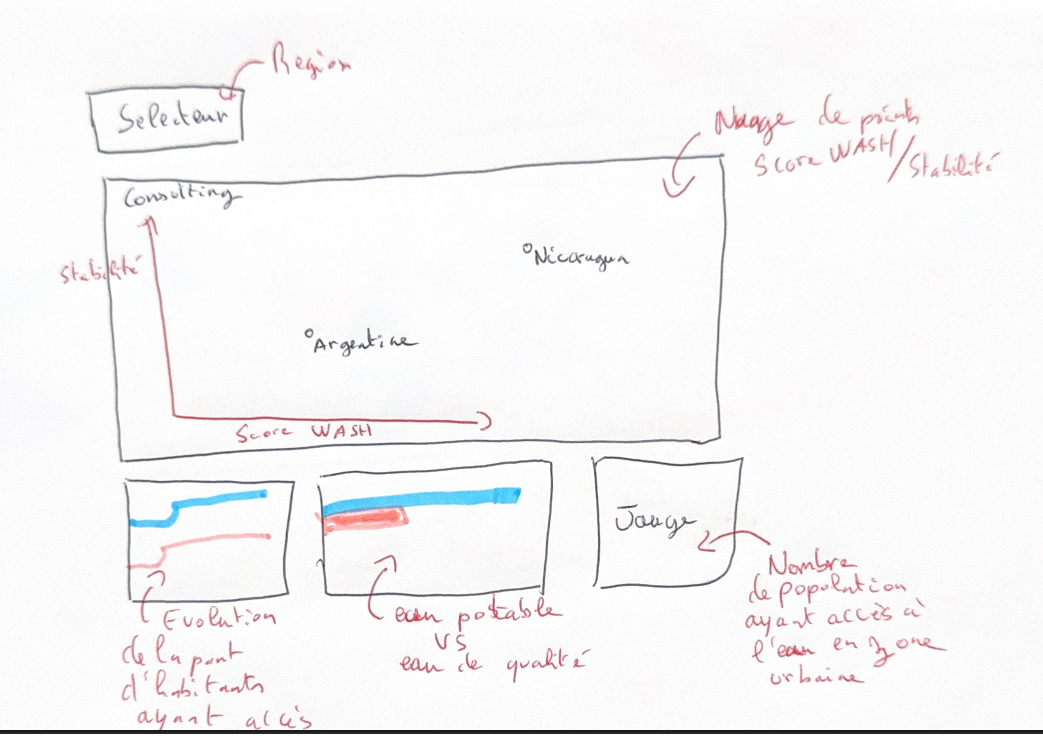 Region
Selecteur
Nuage de points
Score WASH/Stabilité
Consulting
Stabilité
Nicaragua
Argentine
Score WASH
Jauge
Evolution
de la part
d'habitants
ayant accès
eau potable
VS
eau de qualité
Nombre
de population
ayant accès à
l'eau en zone
urbaine